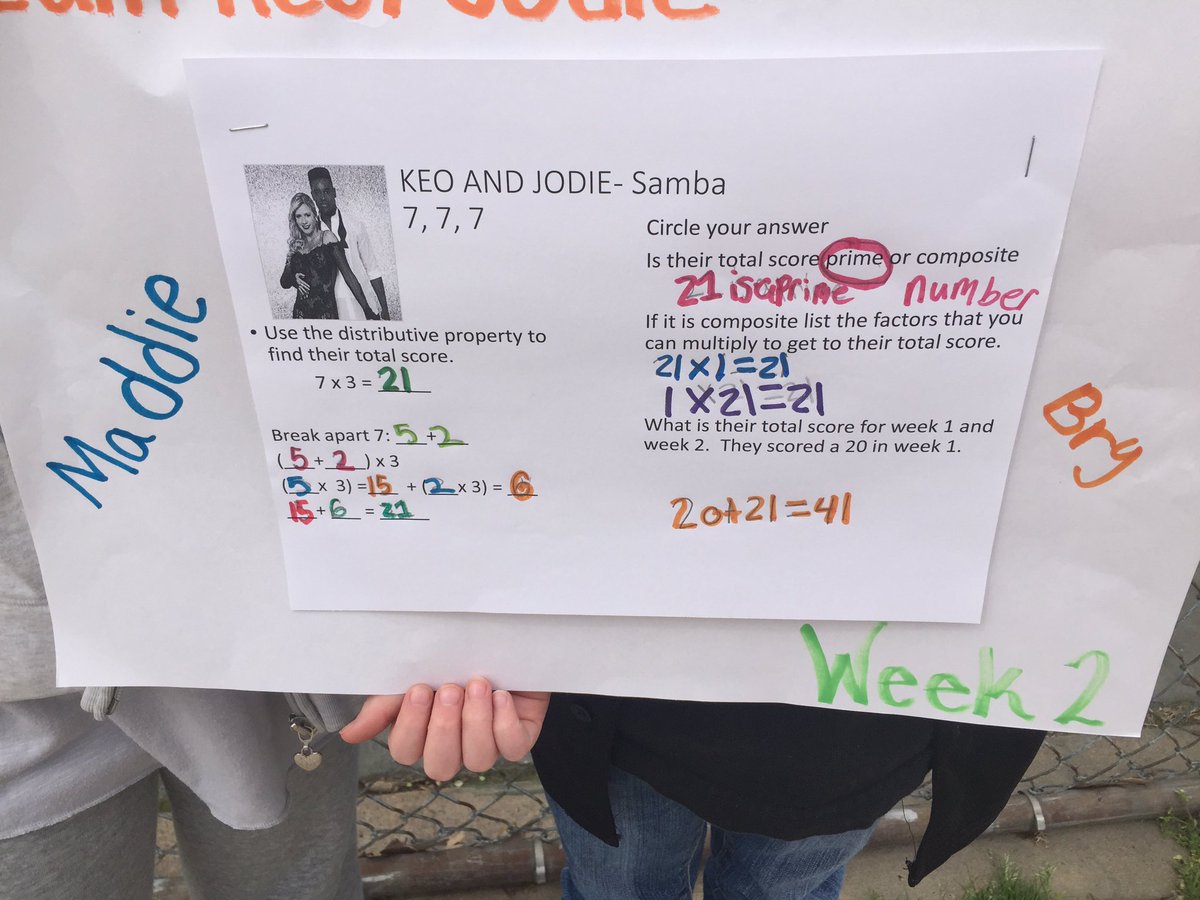 KEO AND JODIE- Samba
7, 7, 7
• Use the distributive property to
find their total score.
7 x 3 = 21
Break apart 7: 5+2
(5+2) x 3
(5 x 3) =15 + (2 x 3) = 6
15+6 = 21
Circle your answer
Is their total score prime or composite
21 is a prime number
If it is composite list the factors that you
can multiply to get to their total score.
21 x 1 = 21
1 x 21 = 21
What is their total score for week 1 and
week 2. They scored a 20 in week 1.
20+21=41
Maddie
Bry
Week 2